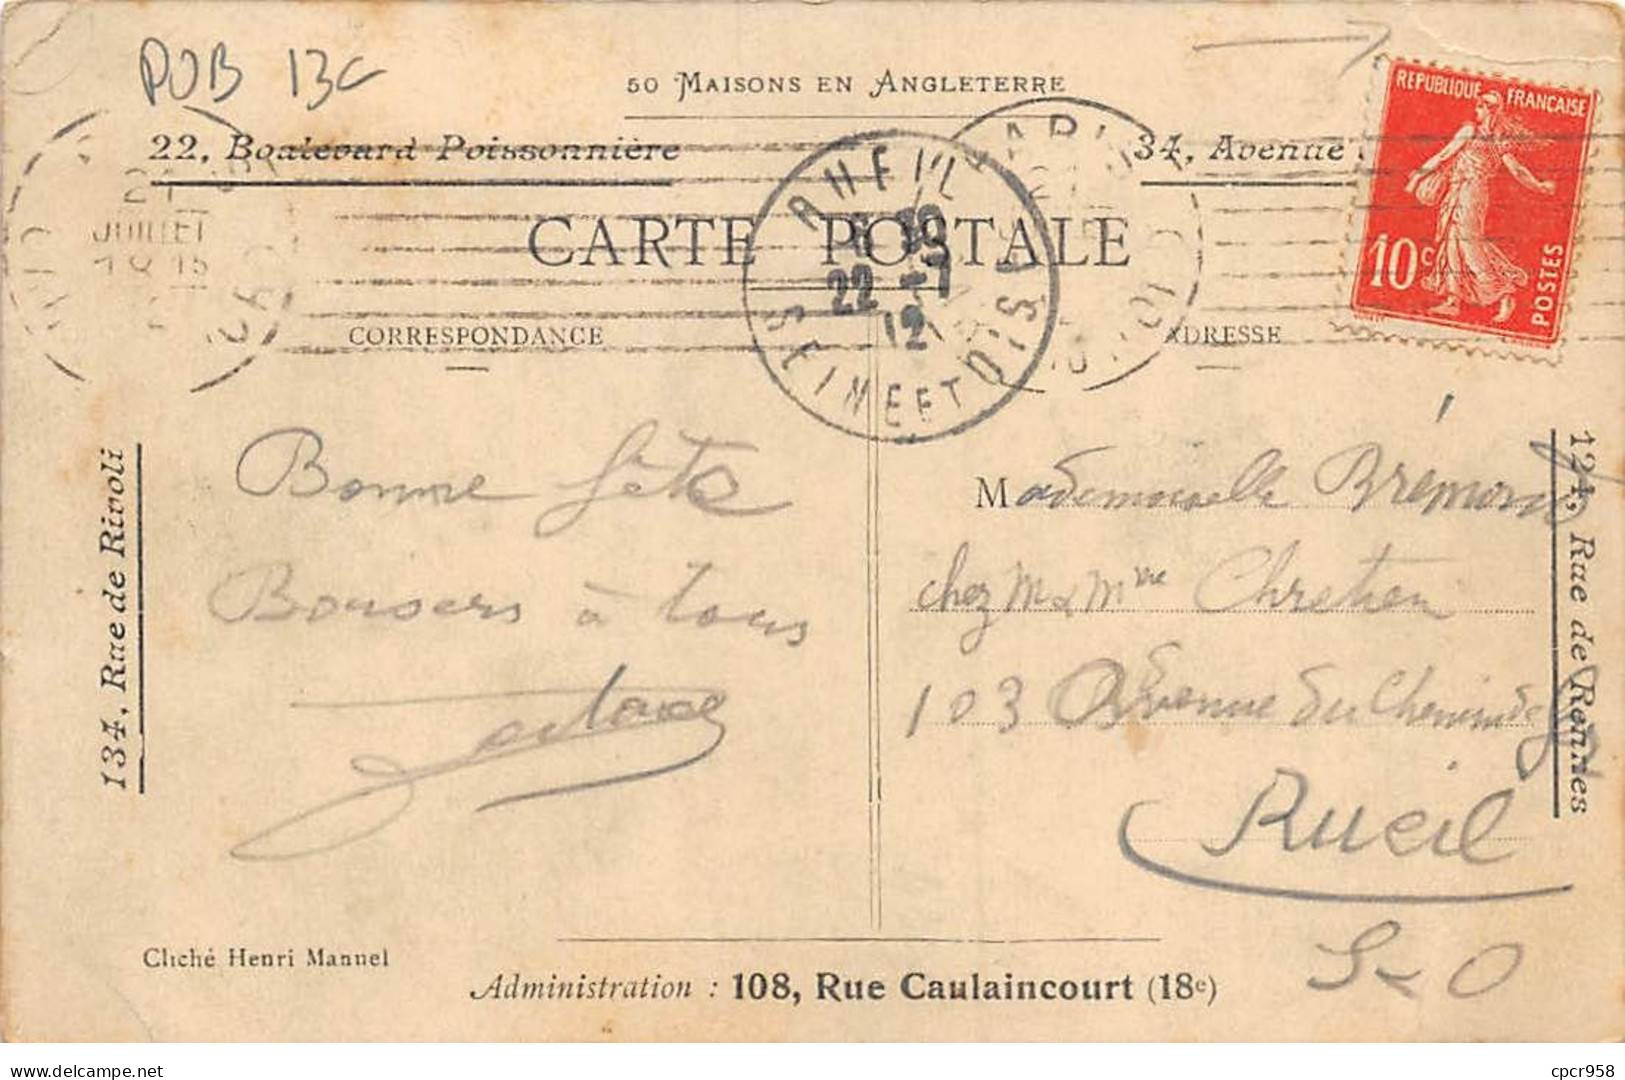 POB 13C
50 MAISONS EN ANGLETERRE
22, Boulevard Poissonnière
34, Avenue
REPUBLIQUE FRANCAISE
10c
POSTES
CARTE POSTALE
RUEIL
22 -7
12
SEINE ET OISE
JUILLET
CORRESPONDANCE
ADRESSE
134, Rue de Rivoli
124, Rue de Rennes
Bonne fête
Bonsers à tous
Mademoiselle Brémond
chez M & Mme Chretien
103 Avenue du Chemin de
Rueil
S & O
Cliché Henri Manuel
Administration : 108, Rue Caulaincourt (18e)
delcampe.net
cpcr958